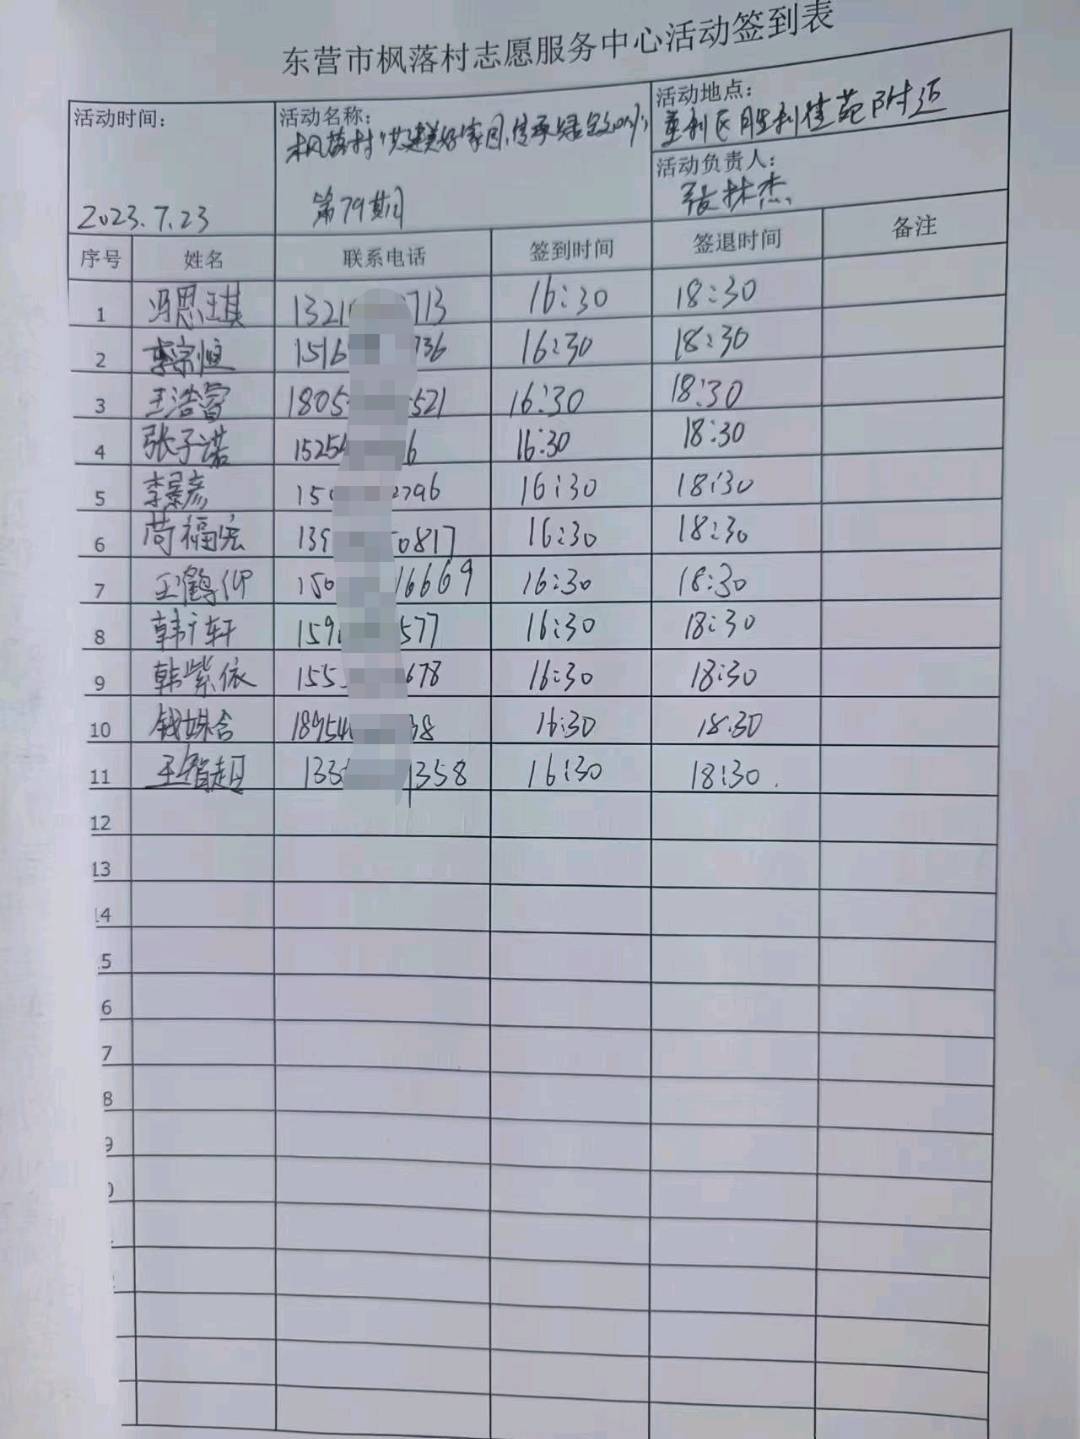 东营市枫落村志愿服务中心活动签到表
活动时间：
2023.7.23
活动名称：
枫落村"共建美好家园,传承
第79期
活动地点：
垦利区胜利佳苑附近
活动负责人：
张林杰
序号 姓名 联系电话 签到时间 签退时间 备注
1 冯思琪 1321 713 16:30 18:30
2 李宗恒 1516 736 16:30 18:30
3 王浩睿 1805 521 16:30 18:30
4 张子诺 15254 6 16:30 18:30
5 李景彦 150 2796 16:30 18:30
6 苟福宏 139 0817 16:30 18:30
7 王鹤 150 16669 16:30 18:30
8 韩 轩 159 577 16:30 18:30
9 韩紫依 155 678 16:30 18:30
10 钱 18954 38 16:30 18.30
11 王智超 133 1358 16:30 18:30.
12
13
14
5
6
7
8
9